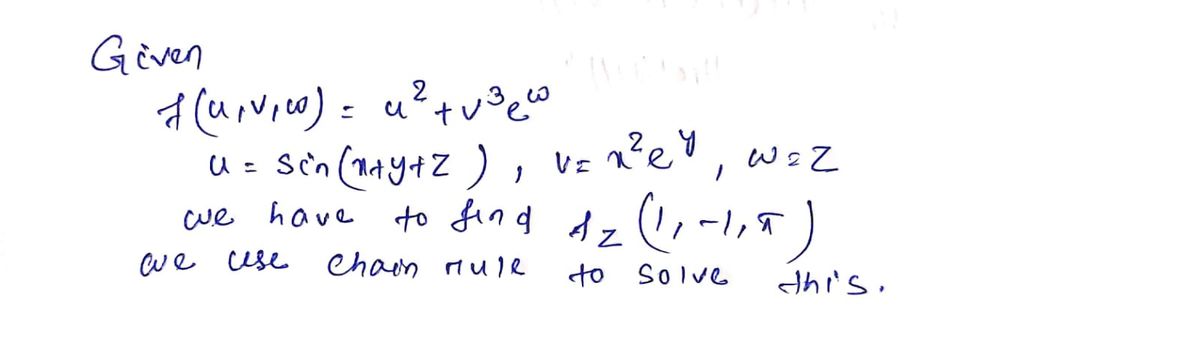 Given
f(u,v,w) = u² + v³e^w
u = sin(x+y+z), v = x²e^y, w = z
we have to find f_z (1, -1, π)
we use chain rule to solve this.